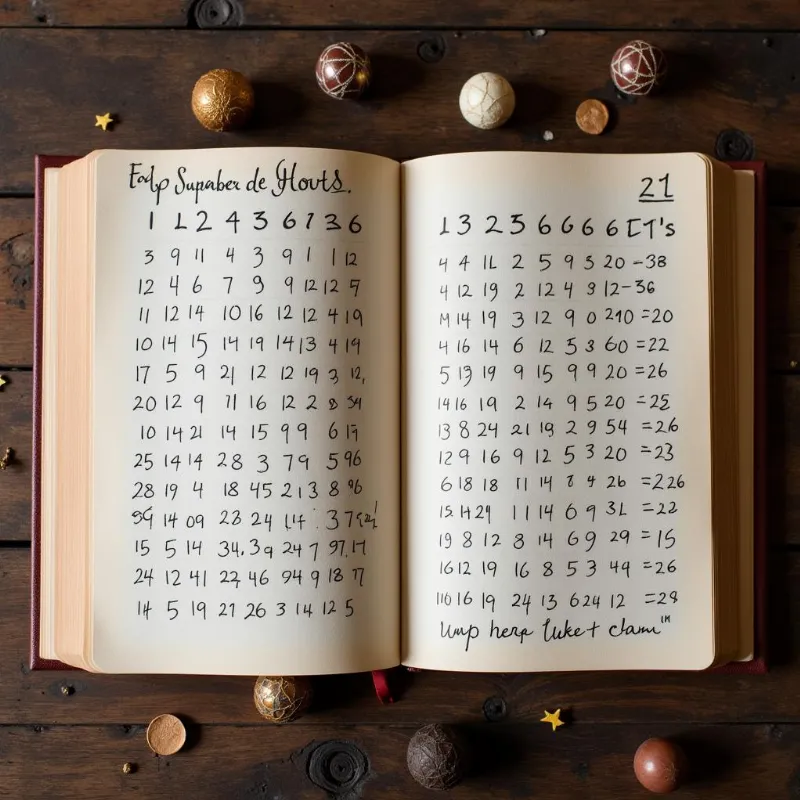 Fadp Supnaber de Hovts.
1 1 2 4 3 6 1 3 6
3 9 11 4 3 9 1 1 12
12 4 6 7 9 9 12 12 5
11 12 14 10 16 12 12 4 19
10 14 15 14 19 14 13 4 19
17 5 9 21 12 12 19 3 12,
20 12 9 11 16 12 2 8 54
10 14 21 14 15 9 9 6 17
25 14 14 28 3 7 9 5 96
28 19 4 18 45 2 1 3 8 96
14 09 23 24 37
15 5 14 34.39 24 7 97.17
24 12 41 22 46 94 9 18 17
14 5 19 21 26 3 14 12 5
21
1 3 2 5 6 6 6 6 [T's
4 4 1L 2 5 9 5 20 -38
4 12 19 2 12 4 9 12-36
14 19 3 12 9 0 210 =20
4 16 14 6 12 5 3 60 =22
5 13 19 9 15 9 9 20 =26
14 16 19 2 14 9 5 20 =25
13 8 24 21 19 2 9 54 =26
12 9 16 9 12 5 3 20 =23
6 18 18 11 14 8 4 26 =226
15 14 29 11 14 6 9 3L =22
19 8 12 8 14 6 9 29 =15
16 12 19 16 8 5 3 49 =26
110 16 19 24 13 6 24 12 =28
Wmp herp luket clam"